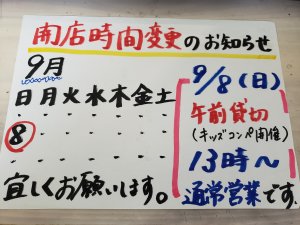 開店時間変更のお知らせ
9月
日月火水木金土
8
宜しくお願いします。
9/8(日)
午前貸切
(キッズコンペ開催)
13時〜
通常営業です。